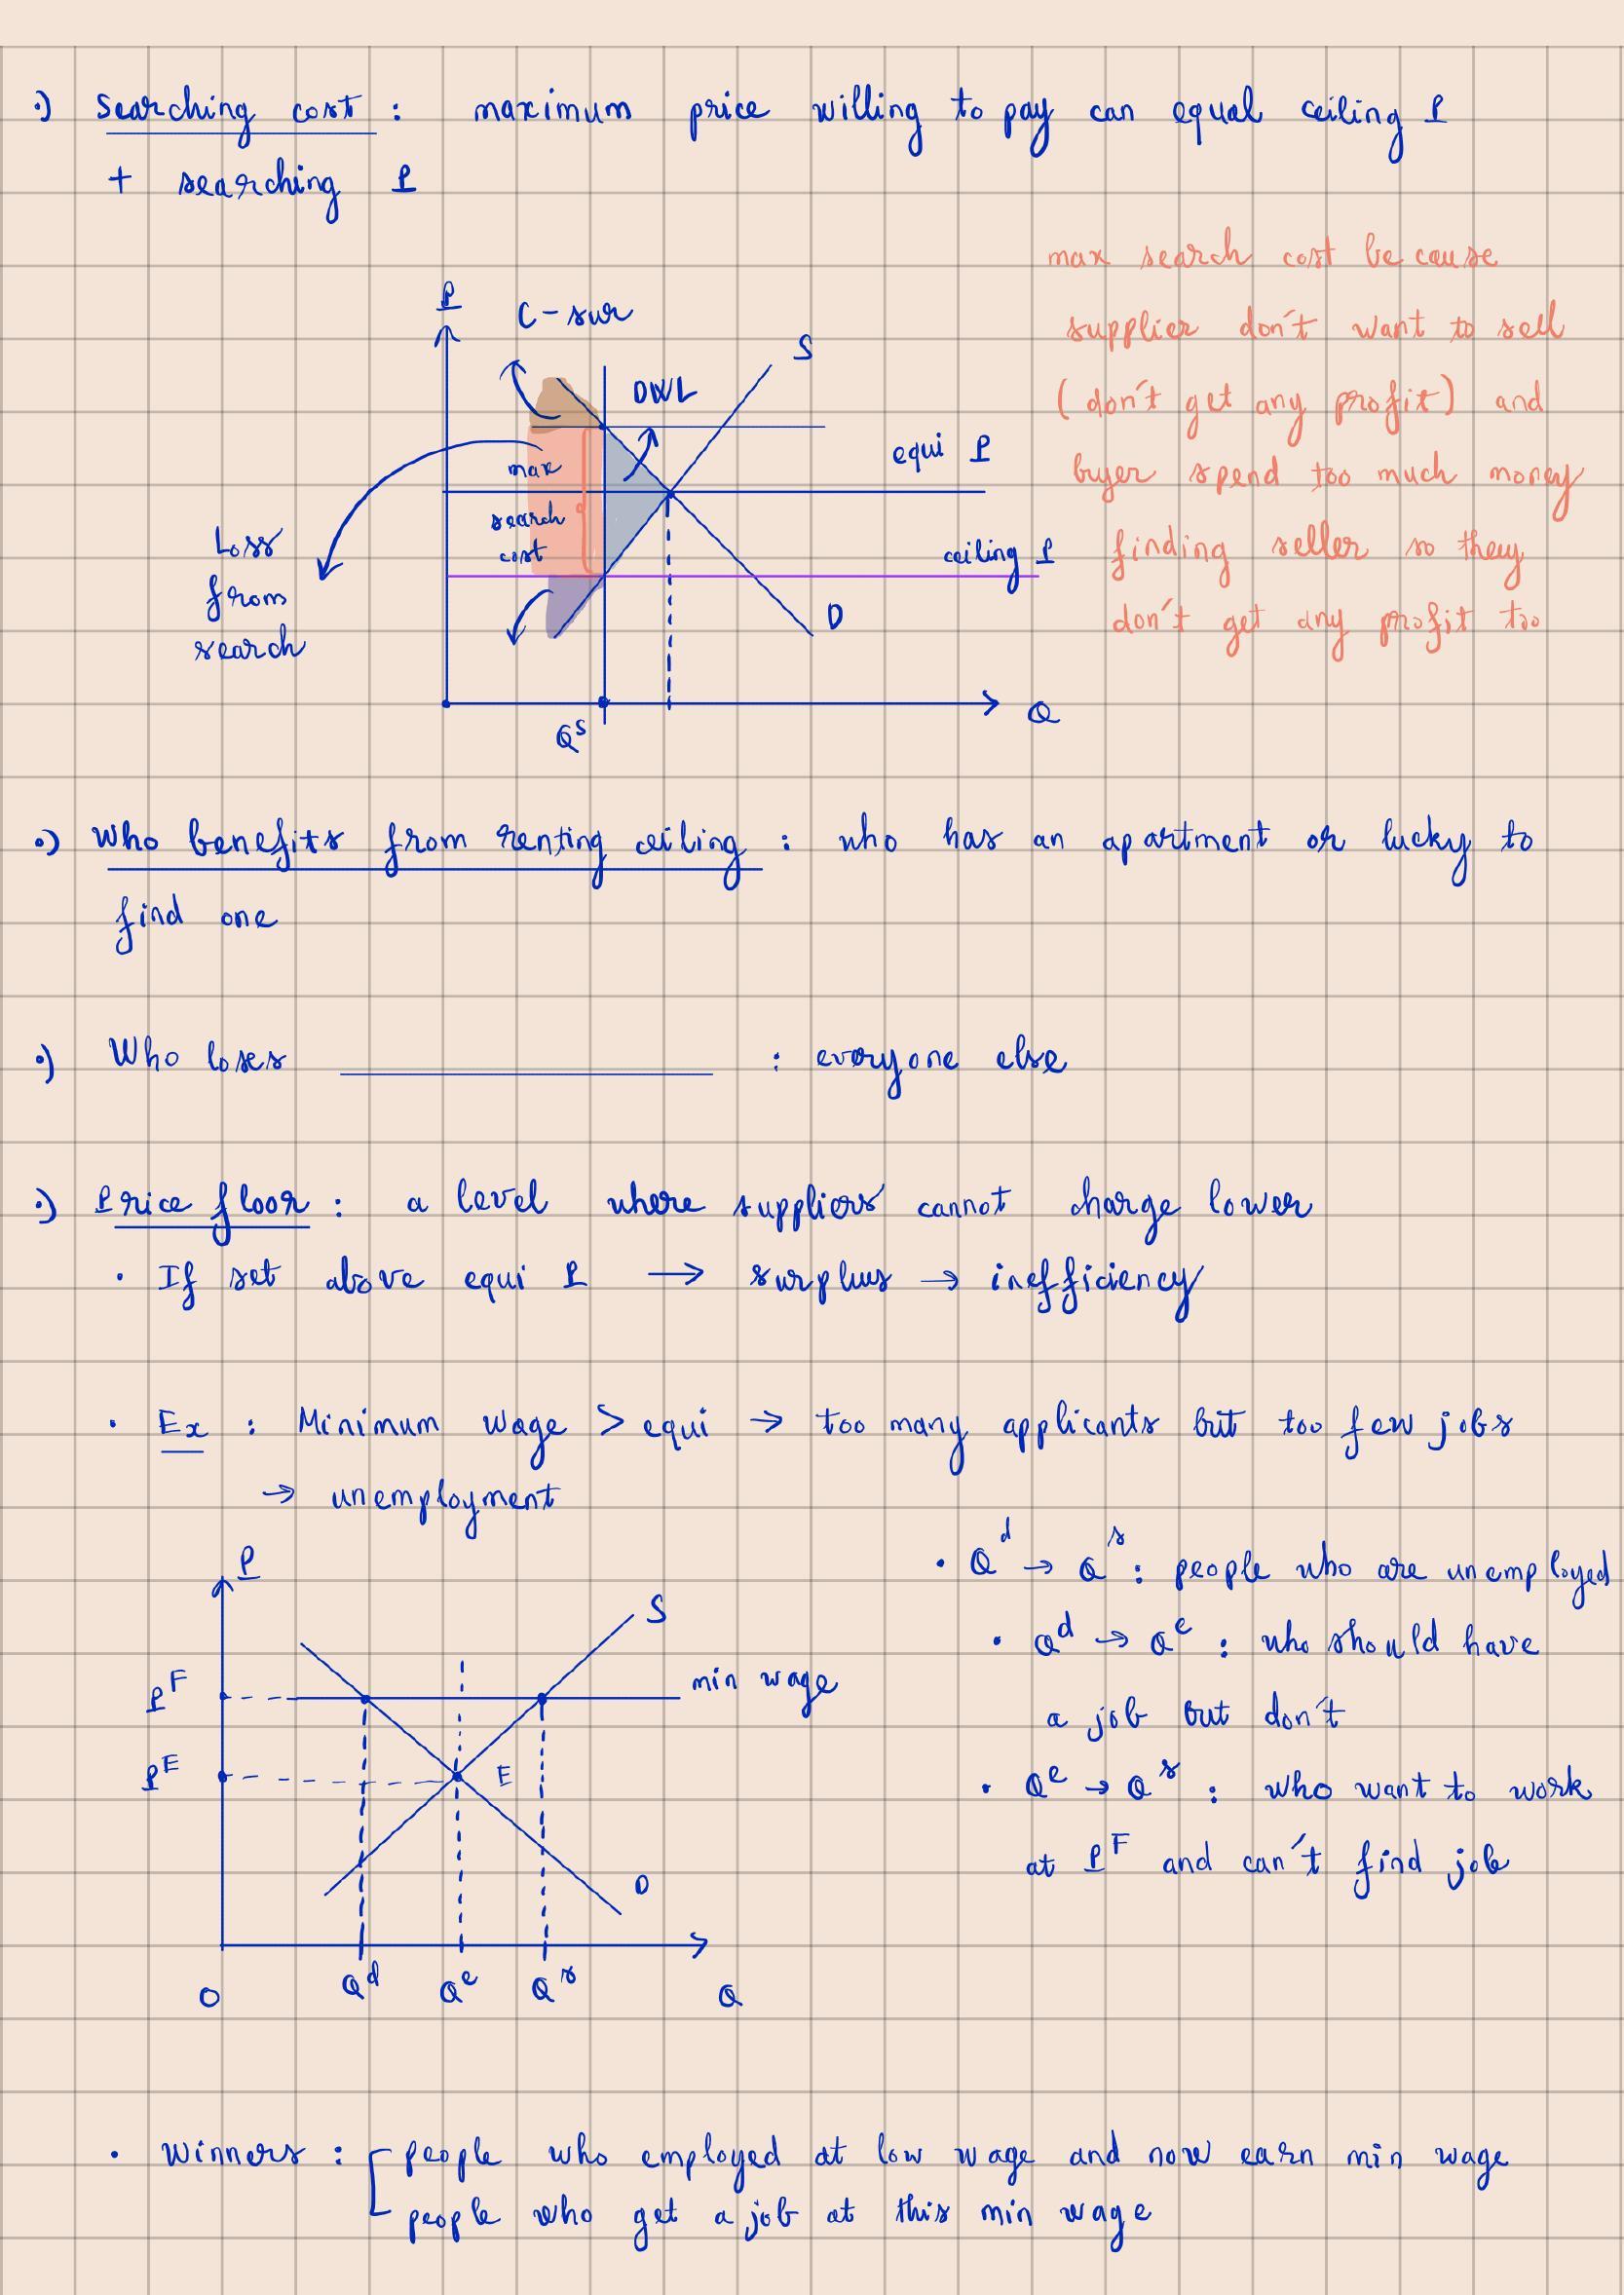 •) Searching cost : maximum price willing to pay can equal ceiling P
+ searching P
max search cost be cause
supplier don't want to sell
(don't get any profit) and
buyer spend too much money
finding seller so they
don't get any profit too
P
C-sur
S
DWL
equi P
max
search
cost
ceiling P
Loss
from
search
D
Q
Q^s
•) Who benefits from renting ceiling : who has an apartment or lucky to
find one
•) Who loses ____________ : everyone else
•) Price floor : a level where suppliers cannot charge lower
• If set above equi P → surplus → inefficiency
• Ex : Minimum wage > equi → too many applicants but too few jobs
→ unemployment
P
S
min wage
P^F
P^E
E
D
O
Q^d
Q^e
Q^s
Q
• Q^d → Q^s : people who are unemployed
• Q^d → Q^e : who should have
a job but don't
• Q^e → Q^s : who want to work
at P^F and can't find job
• Winners : people who employed at low wage and now earn min wage
people who get a job at this min wage